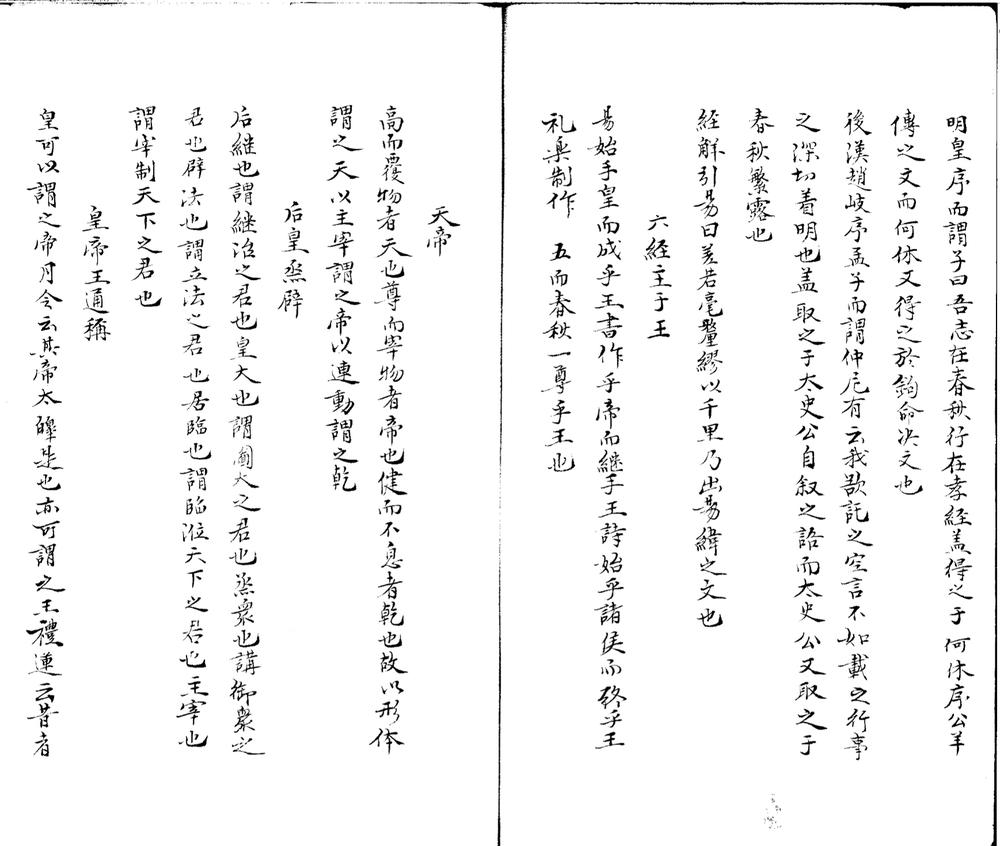 明皇序而謂子曰吾志在春秋行在孝經盖得之于何休序公羊
傳之文而何休又得之於鈎命决文也
後漢趙岐序孟子而謂仲尼有云我欲託之空言不如載之行事
之深切着明也盖取之于太史公自叙之語而太史公又取之于
春秋繁露也
經解引易曰差若毫釐繆以千里乃出易緯之文也
六經主于王
易始乎皇而成乎王書作乎帝而継乎王詩始乎諸侯而終乎王
礼楽制作 五而春秋一尊乎王也
天帝
高而覆物者天也尊而宰物者帝也健而不息者乾也故以形体
謂之天以主宰謂之帝以連動謂之乾
后皇烝辟
后継也謂継治之君也皇大也謂圗大之君也烝衆也講御衆之
君也辟法也謂立法之君也居臨也謂臨涖天下之君也主宰也
謂宰制天下之君也
皇帝王通稱
皇可以謂之帝月令云其帝太皥是也亦可謂之王禮運云昔者